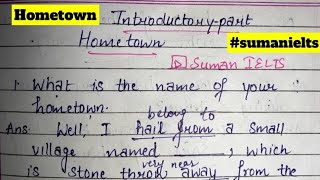 Hometown
Introductory part
#sumanielts
Hometown
Suman IELTS
1. What is the name of your
hometown.
belong to
Ans. Well, I hail from a small
village named ____, which
very near
is stone throw away from the